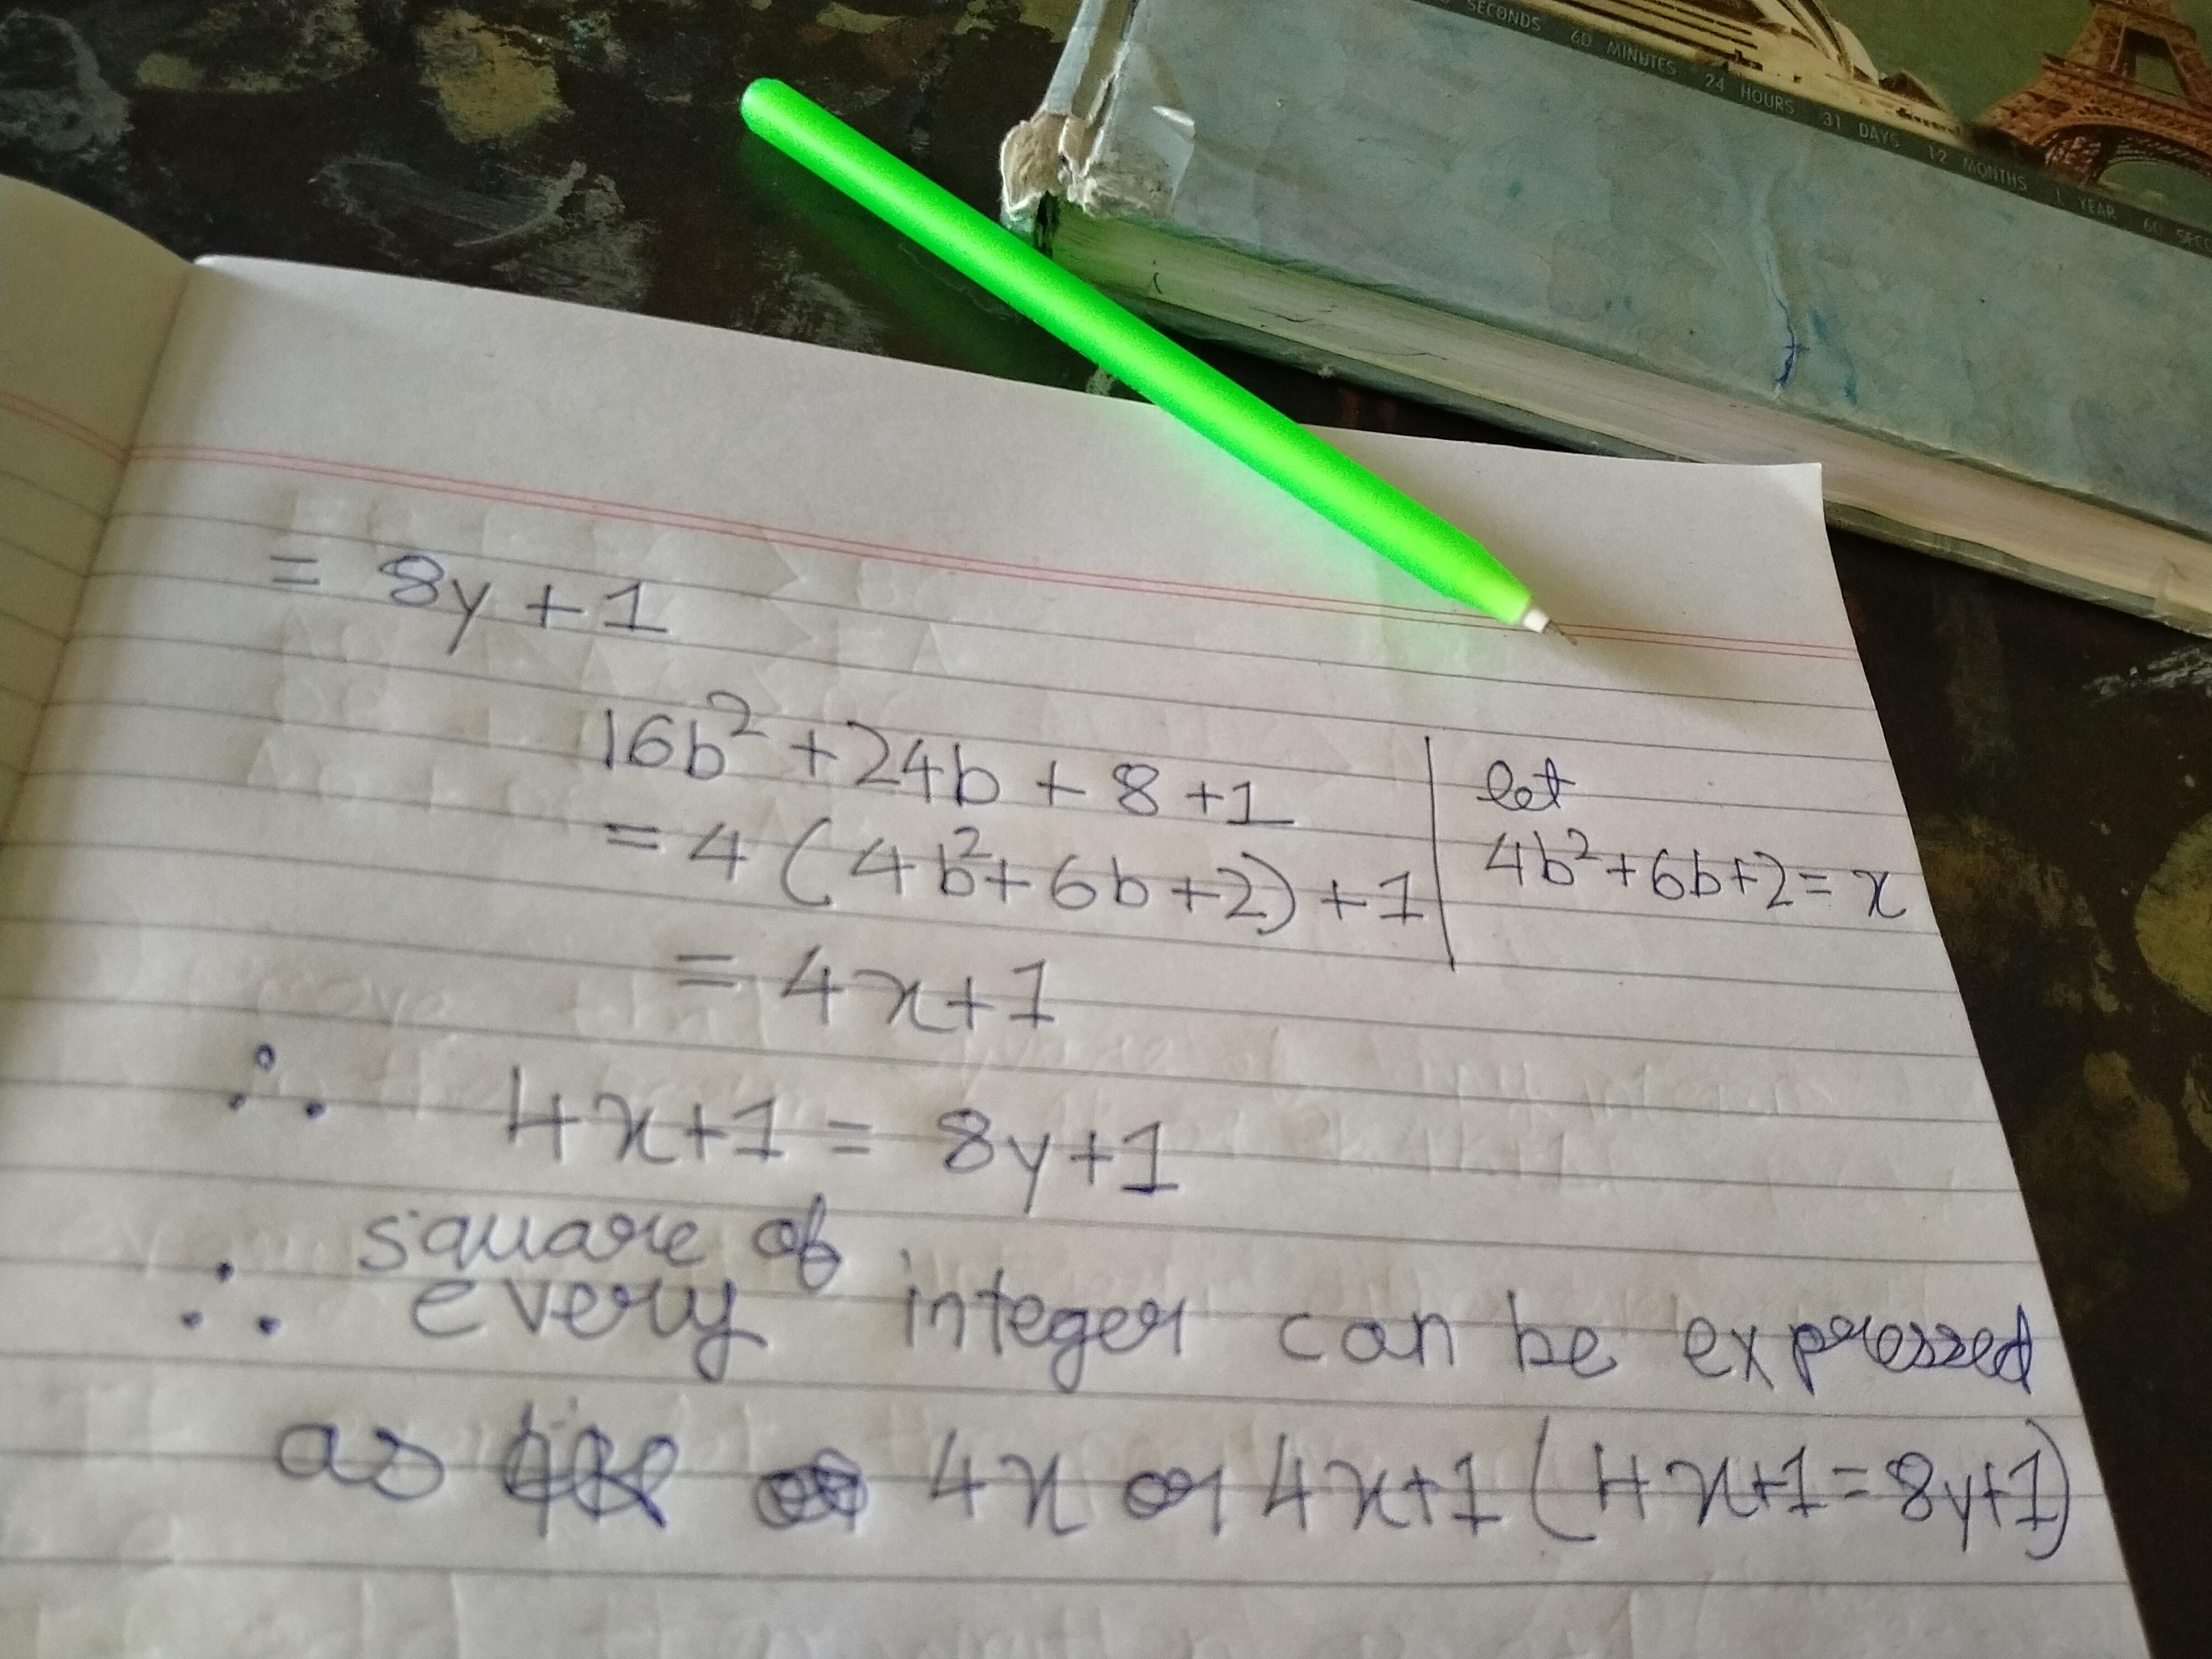 SECONDS 60 MINUTES 24 HOURS 31 DAYS 12 MONTHS 1 YEAR 60 SEC
= 8y + 1
16b² + 24b + 8 + 1
= 4 (4b² + 6b + 2) + 1
let
4b² + 6b + 2 = x
= 4x + 1
∴ 4x + 1 = 8y + 1
square of
∴ every integer can be expressed
as 4x or 4x+1 (4x+1 = 8y+1)